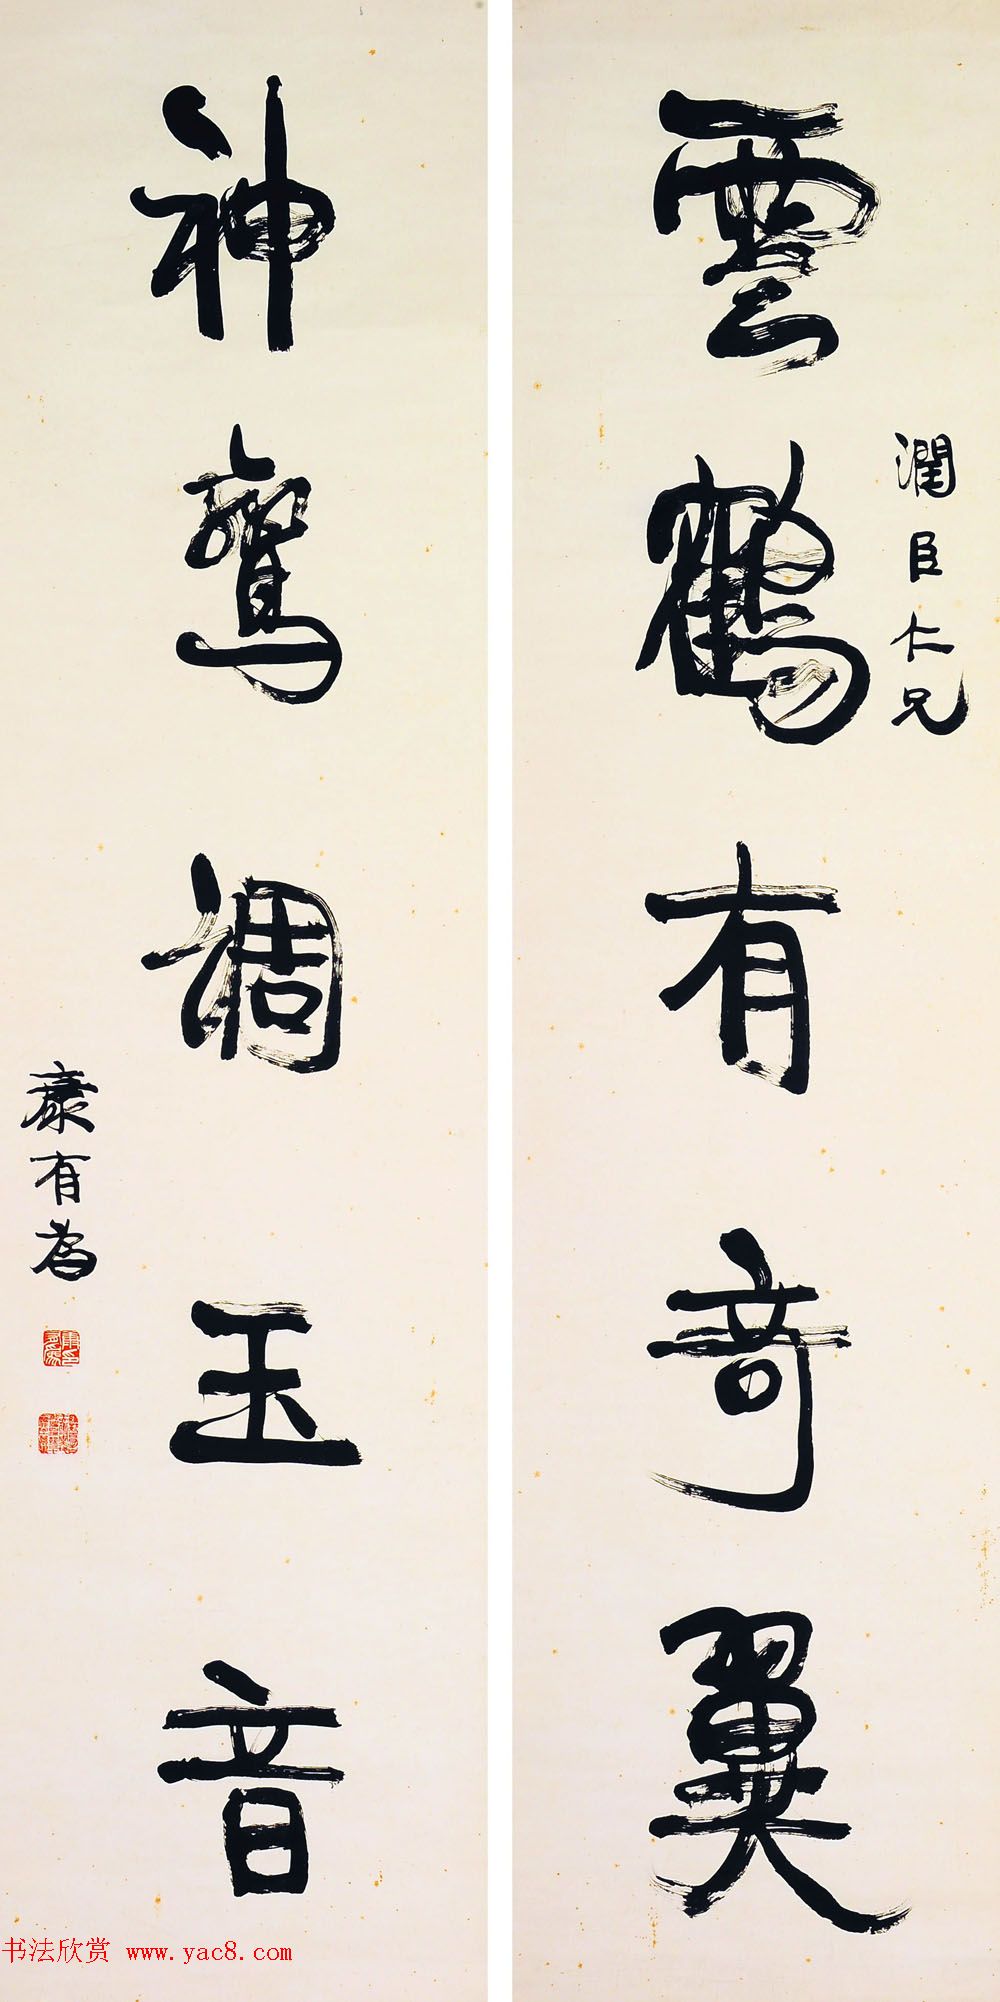 雲鶴有奇翼
潤臣仁兄
神鸞調玉音
康有為
书法欣赏 www.yac8.com